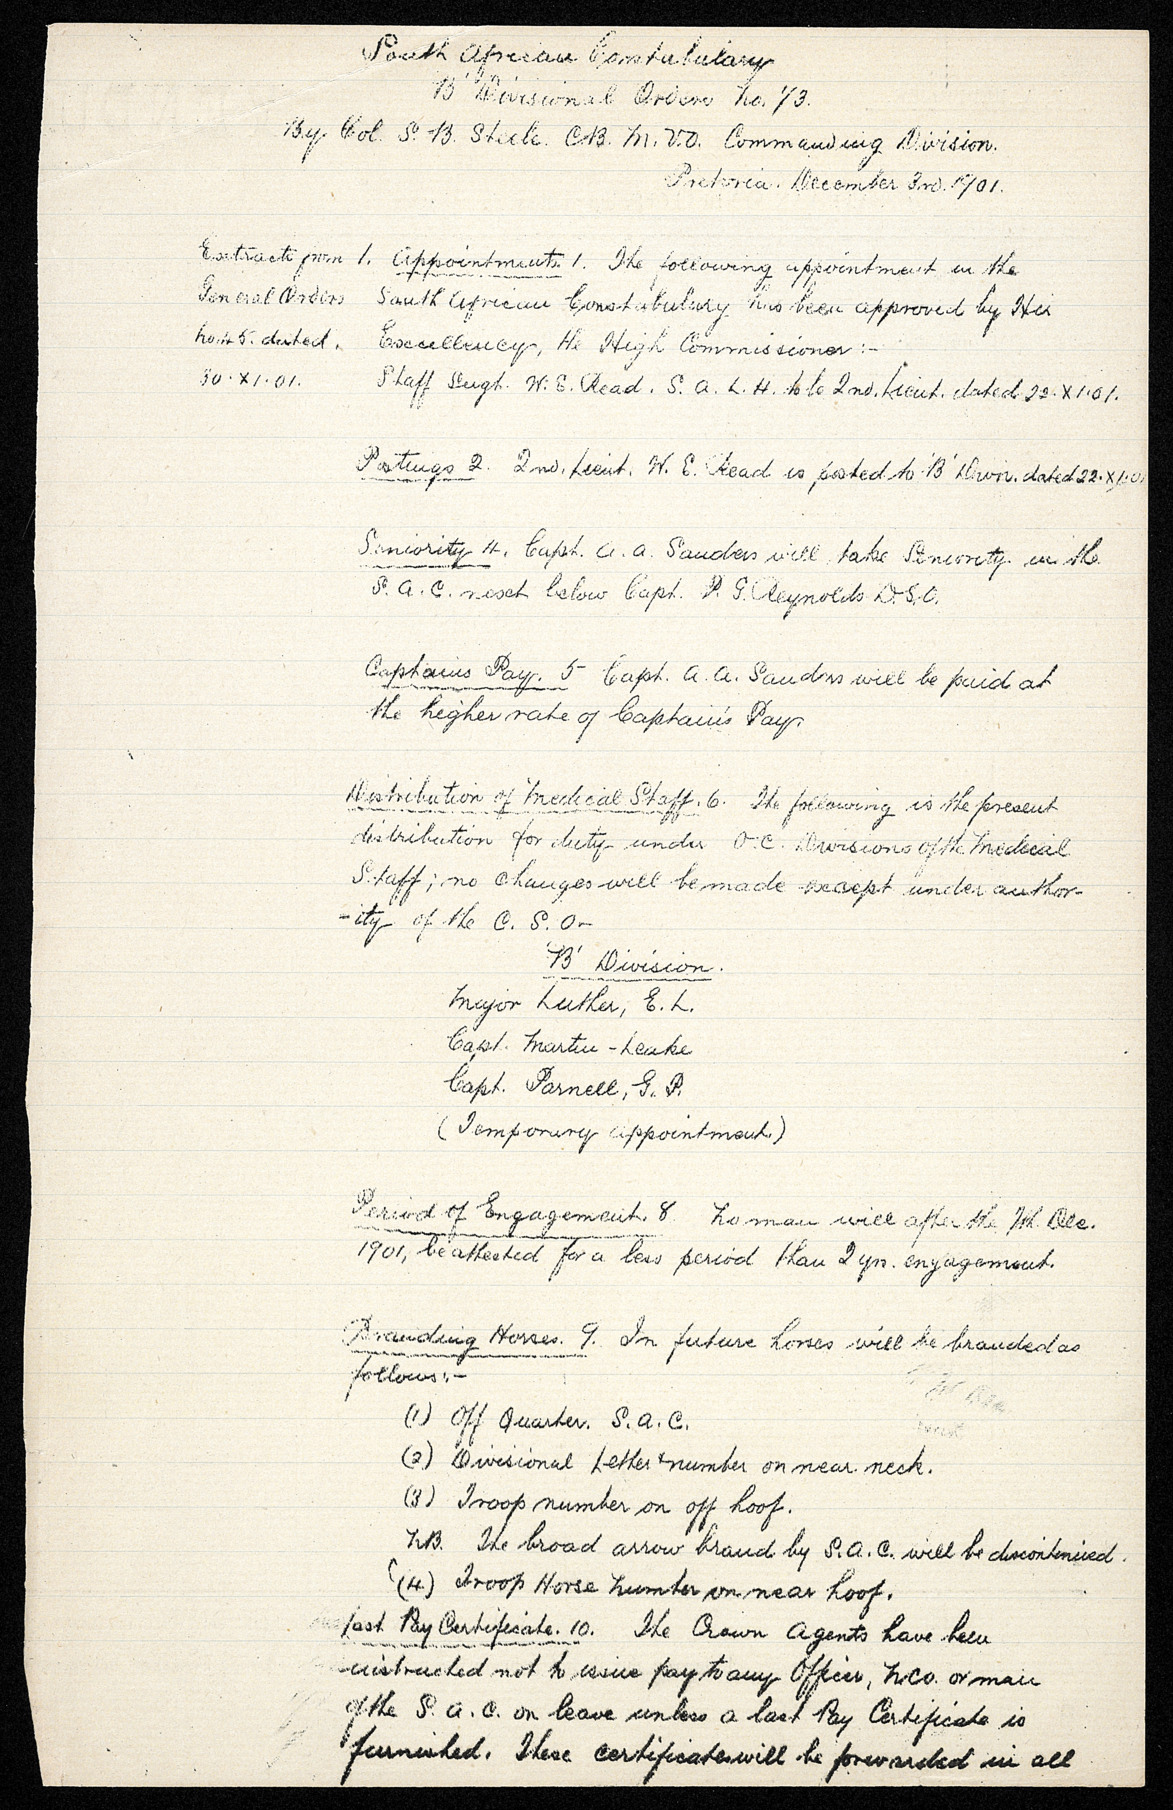 South African Constabulary
'B' Divisional Orders No. 73.
By Col. S. B. Steele. C.B. M.V.O. Commanding Division.
Pretoria. December 3rd. 1901.
Extracts from 1. Appointments. 1. The following appointment in the
General Orders South African Constabulary has been approved by His
No. 45. dated. Excellency, the High Commissioner:-
30.XI.01. Staff Sergt. W. E. Read. S. A. L. H. to be 2nd. Lieut. dated 22.XI.01.
Postings 2. 2nd. Lieut. W. E. Read is posted to 'B' Divn. dated 22.XI.01
Seniority 4. Capt. A. A. Sanders will take Seniority in the
S. A. C. next below Capt. P. G. Reynolds D.S.O.
Captains Pay. 5 Capt. A. A. Sanders will be paid at
the higher rate of Captain's Pay.
Distribution of Medical Staff. 6. The following is the present
distribution for duty under O.C. Divisions of the Medical
Staff; no changes will be made except under author-
-ity of the C. S. O-
'B' Division.
Major Luther, E. L.
Capt. Martin-Leake
Capt. Parnell, G. P.
(Temporary appointment.)
Period of Engagement. 8 No man will after the 7th. Dec.
1901, be attested for a less period than 2 yrs. engagement.
Branding Horses. 9. In future horses will be branded as
follows:-
(1) Off Quarter. S. A. C.
(2) Divisional Letter & number on near neck.
(3) Troop number on off hoof.
N.B. The broad arrow brand by S. A. C. will be discontinued.
(4) Troop Horse Number on near hoof.
Last Pay Certificate. 10. The Crown Agents have been
instructed not to issue pay to any Officer, N.C.O. or man
of the S. A. C. on leave unless a last Pay Certificate is
furnished. These certificates will be forwarded in all